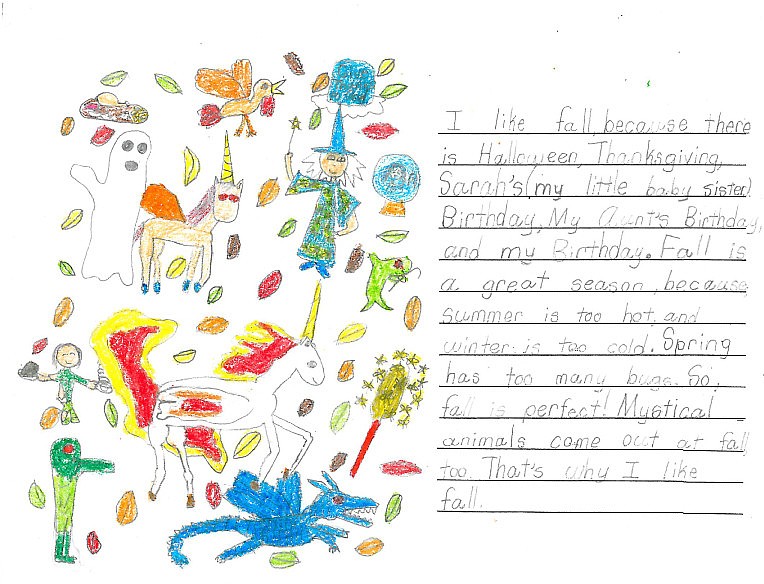 I like fall, because there
is Halloween, Thanksgiving,
Sarah's (my little baby sister)
Birthday, My Aunt's Birthday,
and my Birthday. Fall is
a great season, because
summer is too hot, and
winter is too cold. Spring
has too many bugs. So,
fall is perfect! Mystical
animals come out at fall
too. That's why I like
fall.